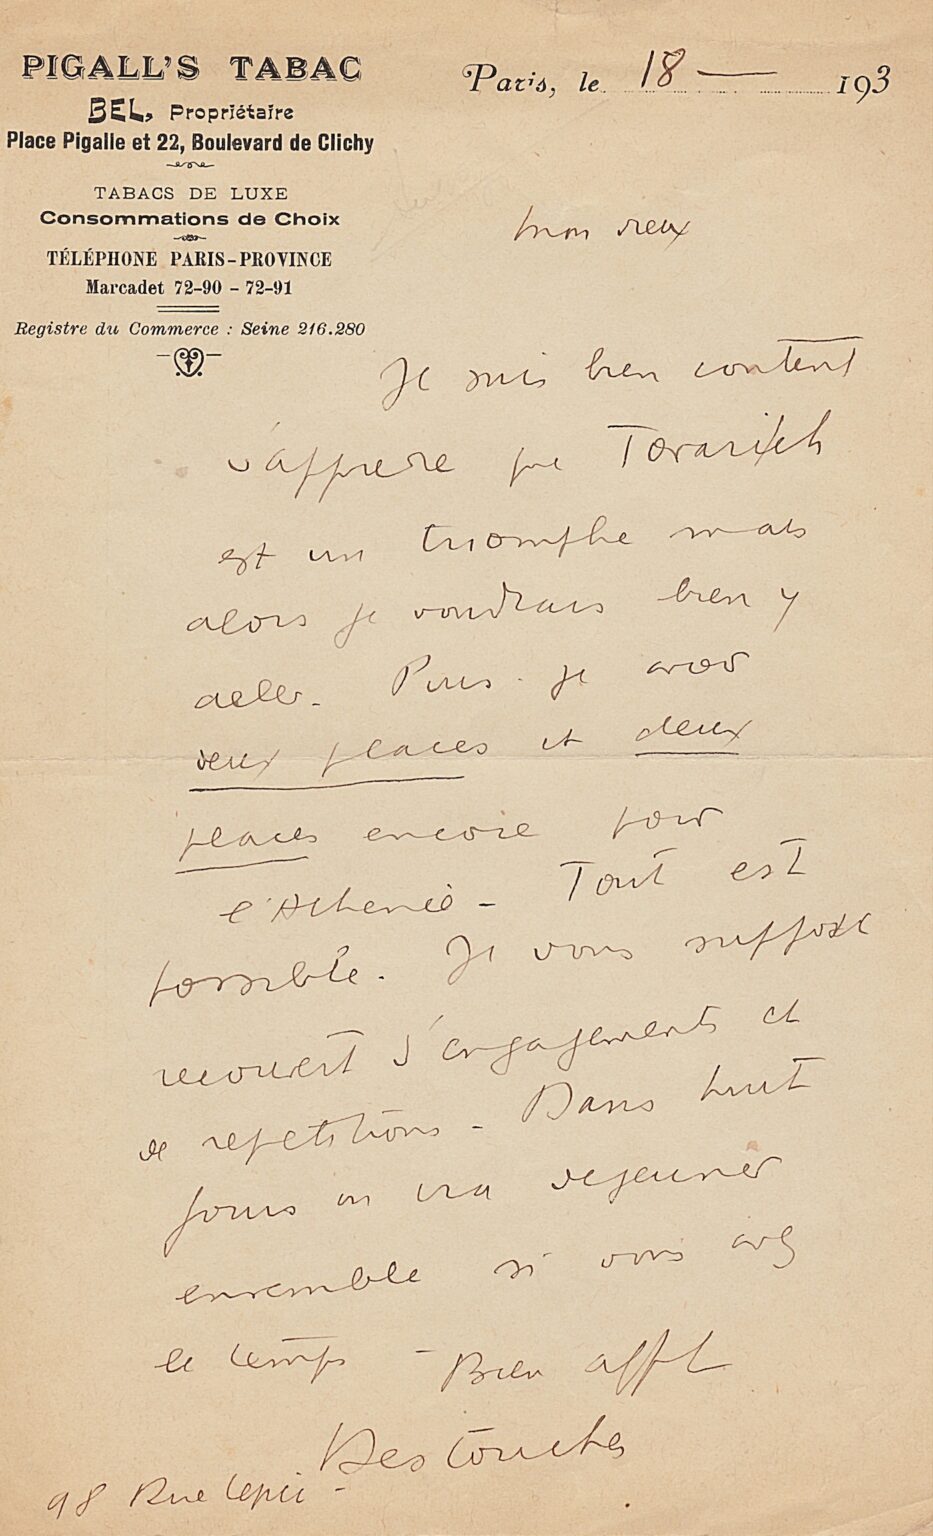 PIGALL'S TABAC
BEL, Propriétaire
Place Pigalle et 22, Boulevard de Clichy
TABACS DE LUXE
Consommations de Choix
TÉLÉPHONE PARIS-PROVINCE
Marcadet 72-90 - 72-91
Registre du Commerce : Seine 216.280
Paris, le 18 — 193
Mon vieux
Je suis bien content
d'apprendre que Tovaritch
est un triomphe mais
alors je voudrais bien y
aller. Puis-je avoir
deux places et deux
places encore pour
l'Athenée - Tout est
possible. Je vous suppose
recouvert d'engagements et
de repetitions - Dans huit
jours on ira dejeuner
ensemble si vous avez
le temps - Bien afft
Destouches
98 Rue Lepic -